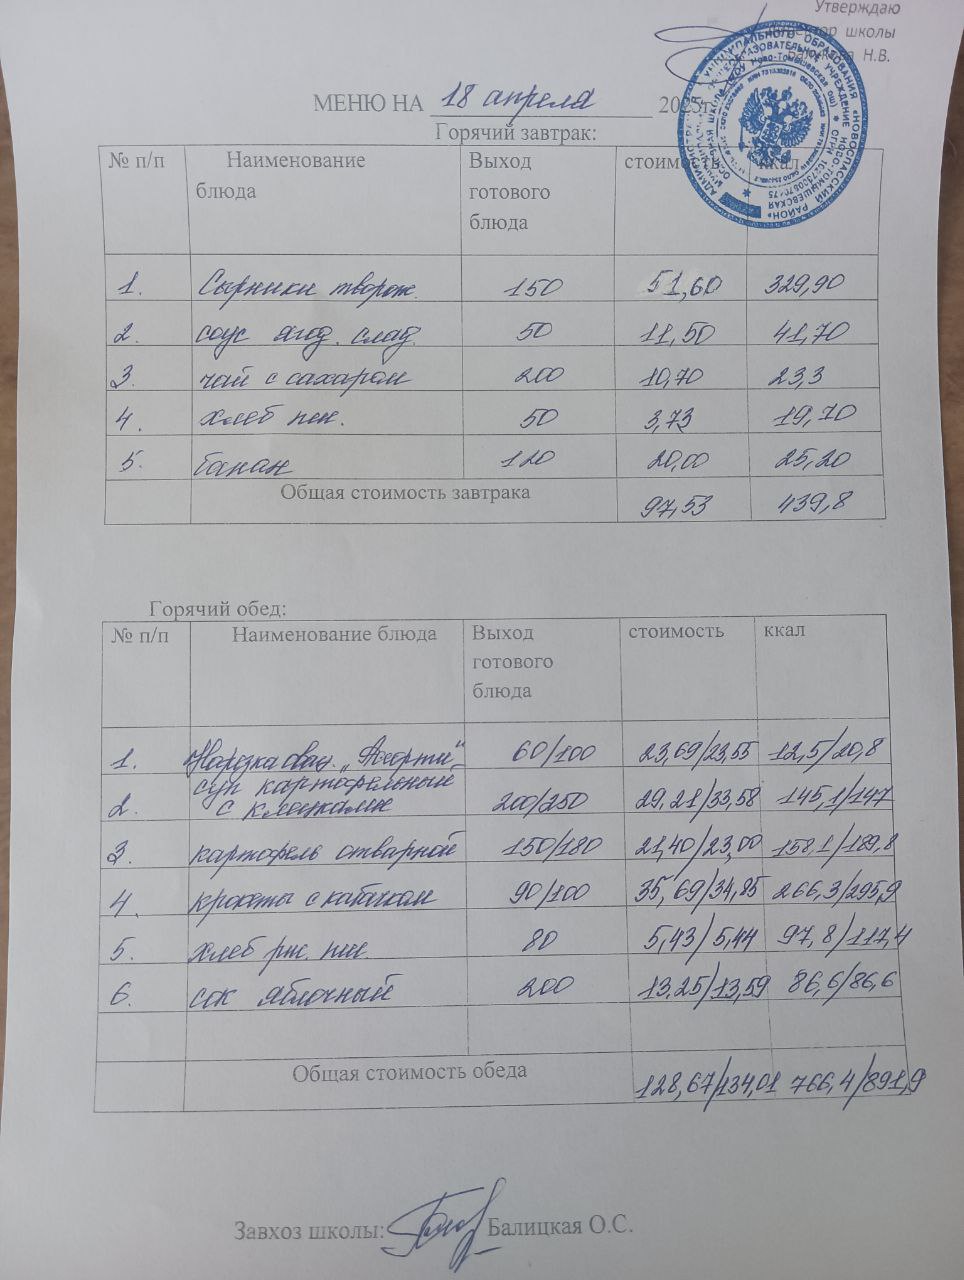 Утверждаю
школы
Н.В.
МЕНЮ НА 18 апреля 2025г.
Горячий завтрак:
№ п/п Наименование блюда Выход готового блюда стоимость ккал
1. Сырники творож. 150 51,60 329,90
2. соус ягод. слад. 50 11,50 41,70
3. чай с сахаром 200 10,70 23,3
4. хлеб пш. 50 3,73 19,70
5. банан 120 20,00 25,20
Общая стоимость завтрака 97,53 439,8
Горячий обед:
№ п/п Наименование блюда Выход готового блюда стоимость ккал
1. Нарезка овощ. „Ассорти“ 60/100 23,69/23,55 12,5/20,8
2. суп картофельный с клецками 200/250 29,21/33,58 145,1/147
3. картофель отварной 150/180 21,40/23,00 158,1/189,8
4. 90/100 35,69/34,85 266,3/295,9
5. хлеб рж. пш. 80 5,43/5,44 97,8/117,4
6. сок яблочный 200 13,25/13,59 86,6/86,6
Общая стоимость обеда 128,67/134,01 766,4/891,9
Завхоз школы: Балицкая О.С.